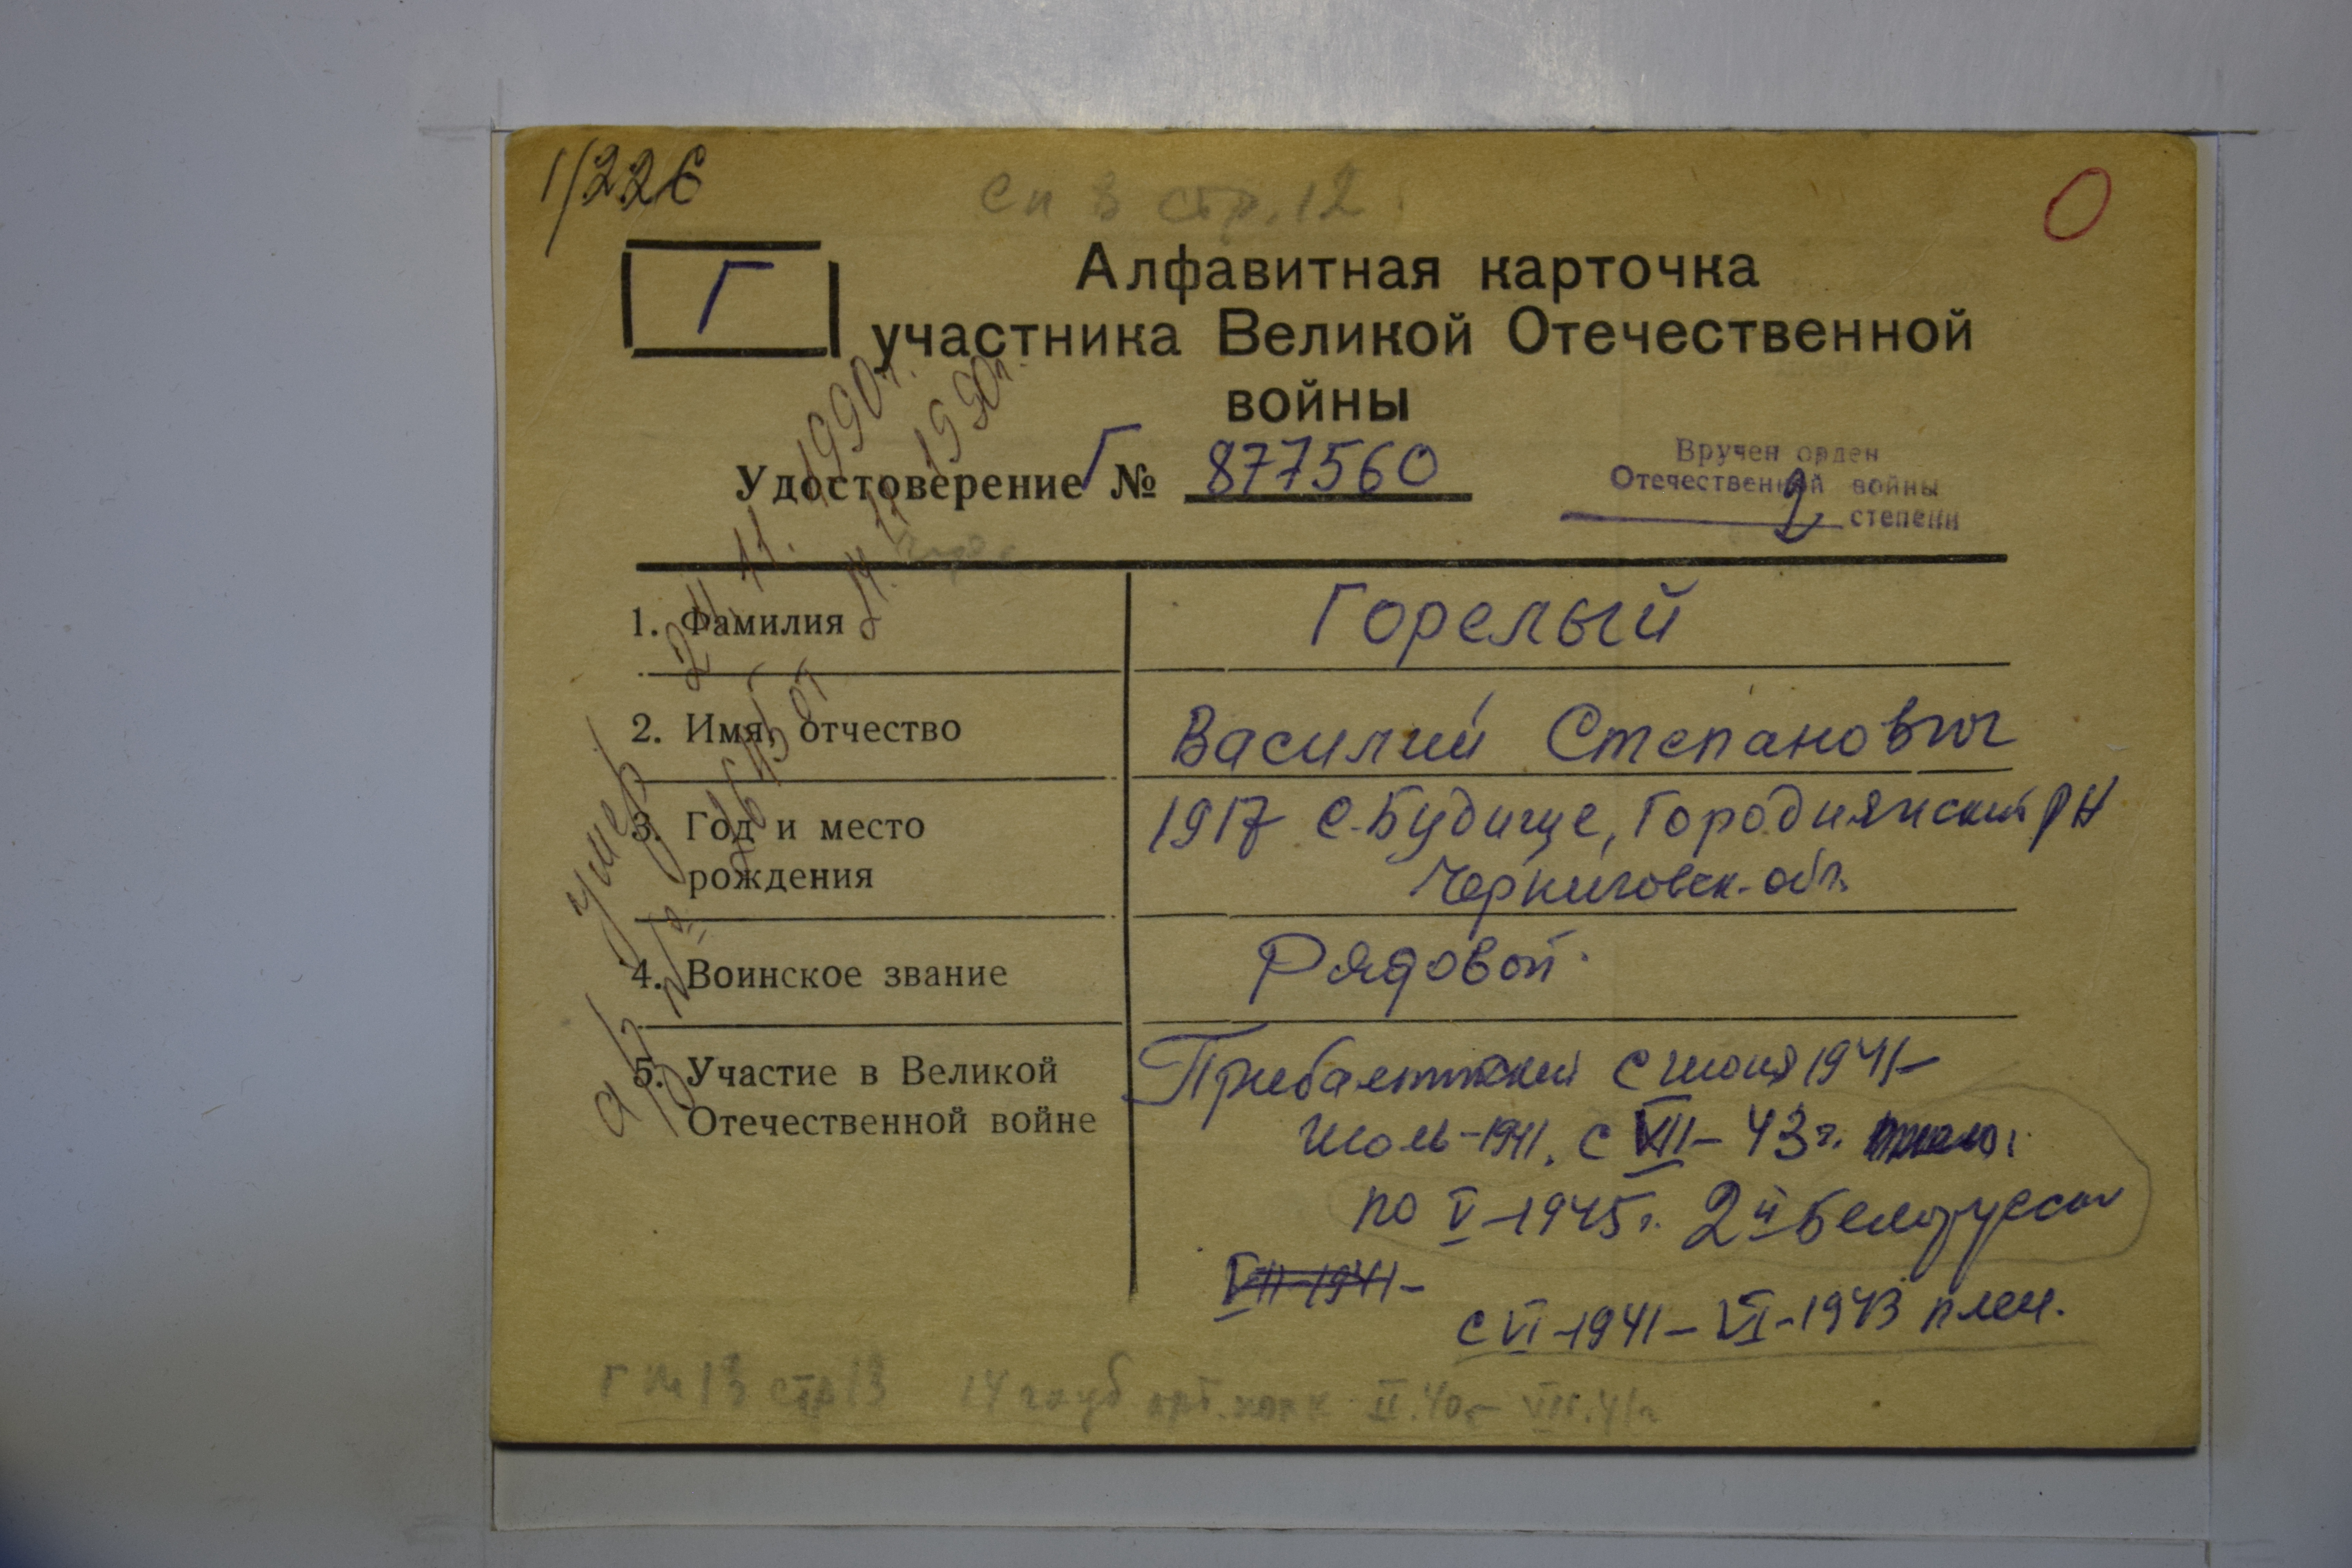 1/226
Сп 3 стр. 12
О
Г
Алфавитная карточка
участника Великой Отечественной
войны
Удостоверение Г № 877560
Вручен орден
Отечественной войны
2 степени
1. Фамилия
Горелый
2. Имя, отчество
Василий Степанович
3. Год и место
рождения
1917 с. Будище, Городнянский рн
Черниговск. обл.
4. Воинское звание
Рядовой
5. Участие в Великой
Отечественной войне
Прибалтийский с июня 1941–
июль-1941. с VIII–43 г.
по V–1945 г. 2й Белорусск
VII-1941–
с VI–1941– VI–1943 плен.
умер 24. 11. 1990 г.
№ от 24. 11 1990 г.
Г № 13 стр 13 14 гауб арт. полк II.40 г– VII.41 г